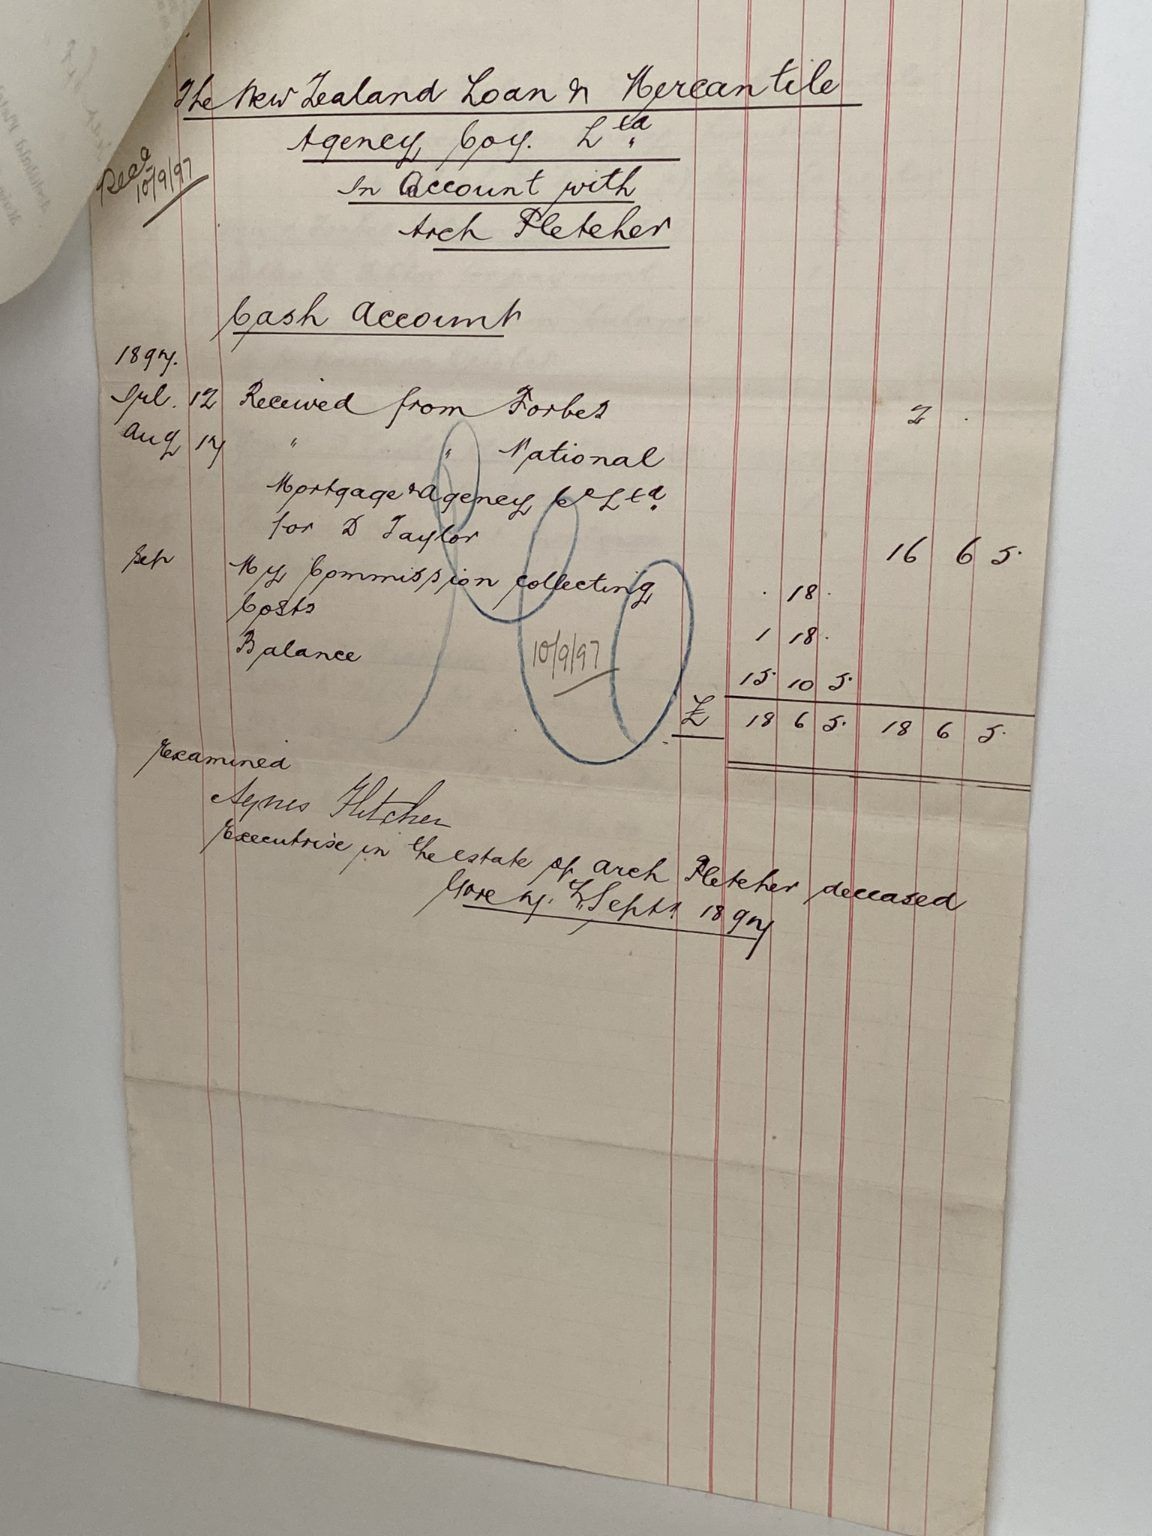 The New Zealand Loan & Mercantile
Agency Coy. Ltd
Recd
10/9/97
In Account with
Arch Fletcher
Cash Account
1897.
Jul. 12 Received from Forbes 2 .
Aug 17 " " National
Mortgage & Agency Co Ltd
for D Taylor 16 6 5.
Sep My Commission collecting . 18 .
Costs 1 18 .
Balance 15 10 5.
10/9/97
£ 18 6 5. 18 6 5.
Examined
Agnes Fletcher
Executrix in the estate of Arch Fletcher deceased
Gore Sept. 1897